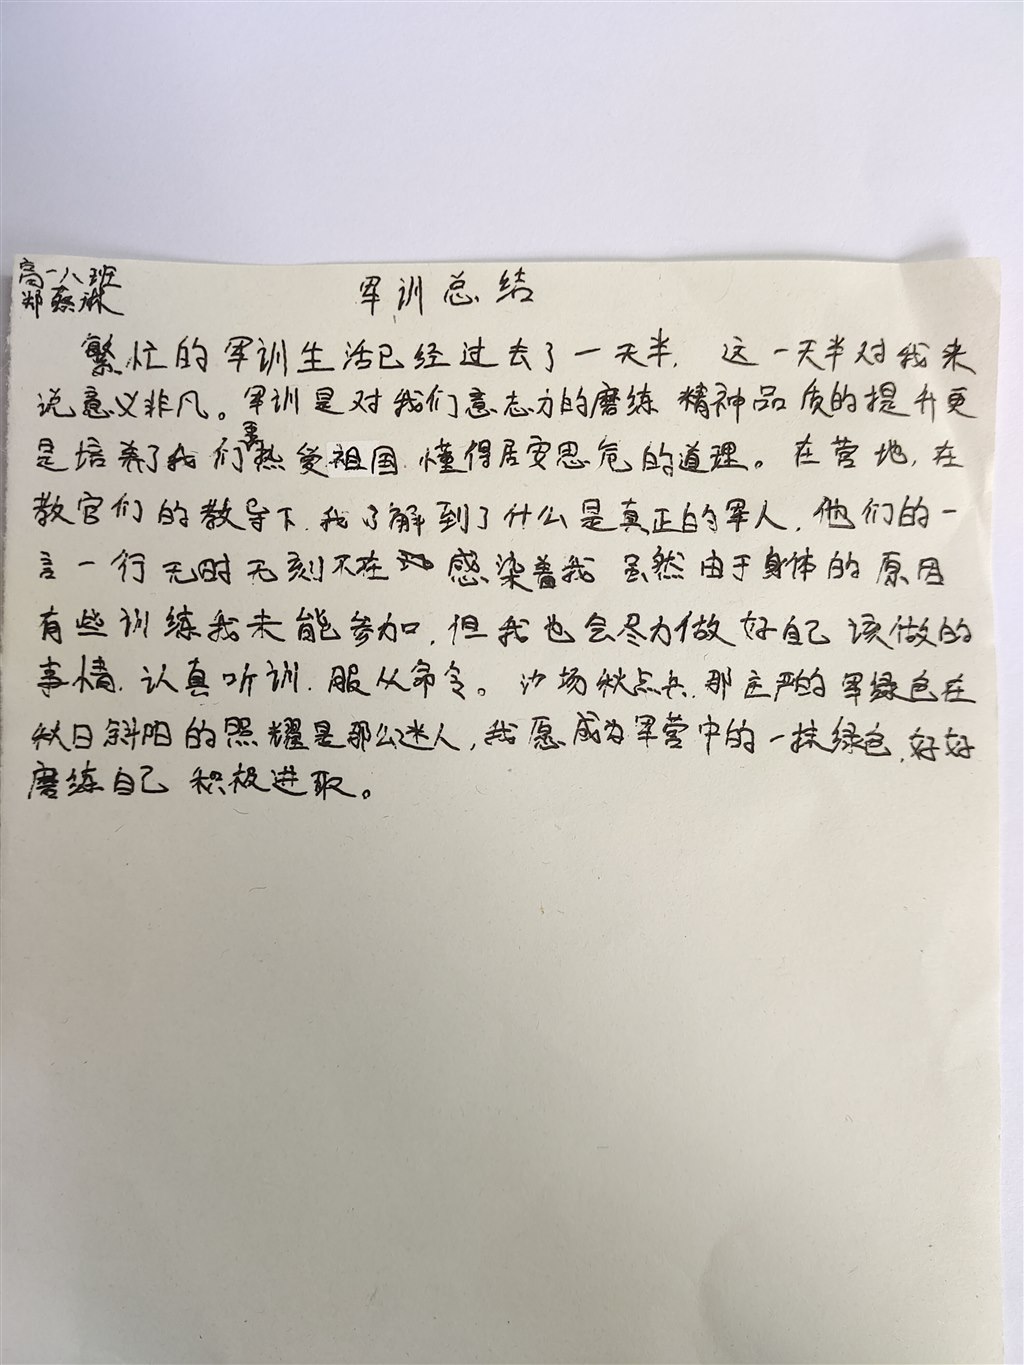 高一八班
郑蔡琳
军训总结
繁忙的军训生活已经过去了一天半，这一天半对我来
说意义非凡。军训是对我们意志力的磨练 精神品质的提升更
是培养了我们要热爱祖国 懂得居安思危的道理。在营地，在
教官们的教导下，我了解到了什么是真正的军人，他们的一
言一行无时无刻不在 感染着我 虽然由于身体的原因
有些训练我未能参加，但我也会尽力做好自己该做的
事情，认真听训，服从命令。沙场秋点兵，那庄严的军绿色在
秋日斜阳的照耀是那么迷人，我愿成为军营中的一抹绿色，好好
磨练自己 积极进取。